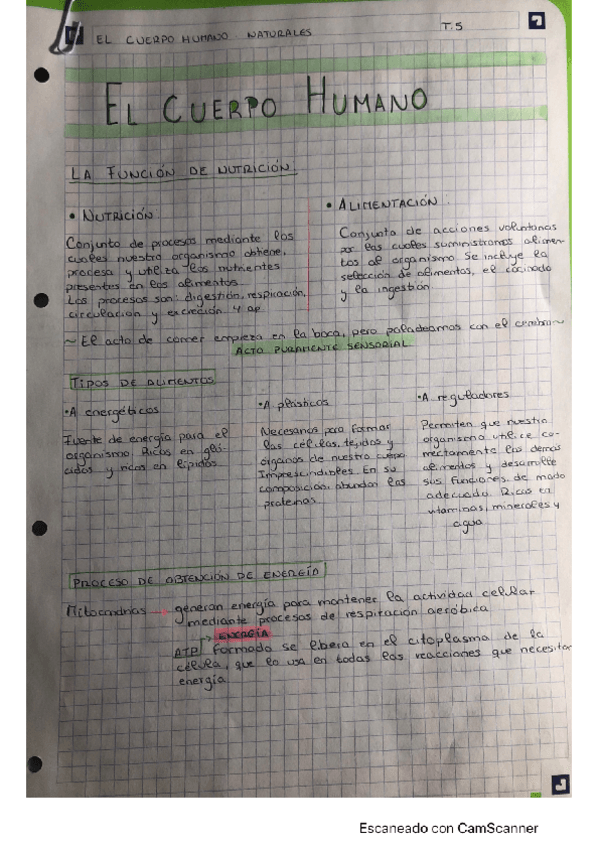 EL CUERPO HUMANO NATURALES T.5
EL CUERPO HUMANO
LA FUNCIÓN DE NUTRICIÓN:
• NUTRICIÓN:
Conjunto de procesos mediante los
cuales nuestro organismo obtiene,
procesa y utiliza los nutrientes
presentes en los alimentos.
Los procesos son: digestión, respiración,
circulación y excreción. 4 ap
• ALIMENTACIÓN:
Conjunto de acciones voluntarias
por las cuales suministramos alimen-
tos al organismo se incluye la
selección de alimentos, el cocinado
y la ingestión.
~ El acto de comer empieza en la boca, pero paladeamos con el cerebro ~
ACTO PURAMENTE SENSORIAL.
TIPOS DE ALIMENTOS
• A energéticos
Fuente de energía para el
organismo. Ricos en glú-
cidos y ricos en lípidos.
• A plásticos
Necesarios para formar
las células, tejidos y
órganos de nuestro cuerpo
Imprescindibles. En su
composición, abundan las
proteínas.
• A reguladores
Permiten que nuestro
organismo utilice co-
rrectamente los demás
alimentos y desarrolle
sus funciones de modo
adecuado. Ricos en
vitaminas, minerales y
agua
PROCESO DE OBTENCIÓN DE ENERGÍA
Mitocondrias → generan energía para mantener la actividad celular
mediante procesos de respiración aeróbica.
→ ENERGÍA
ATP formado se libera en el citoplasma de la
célula, que lo usa en todas las reacciones que necesitan
energía.
Escaneado con CamScanner